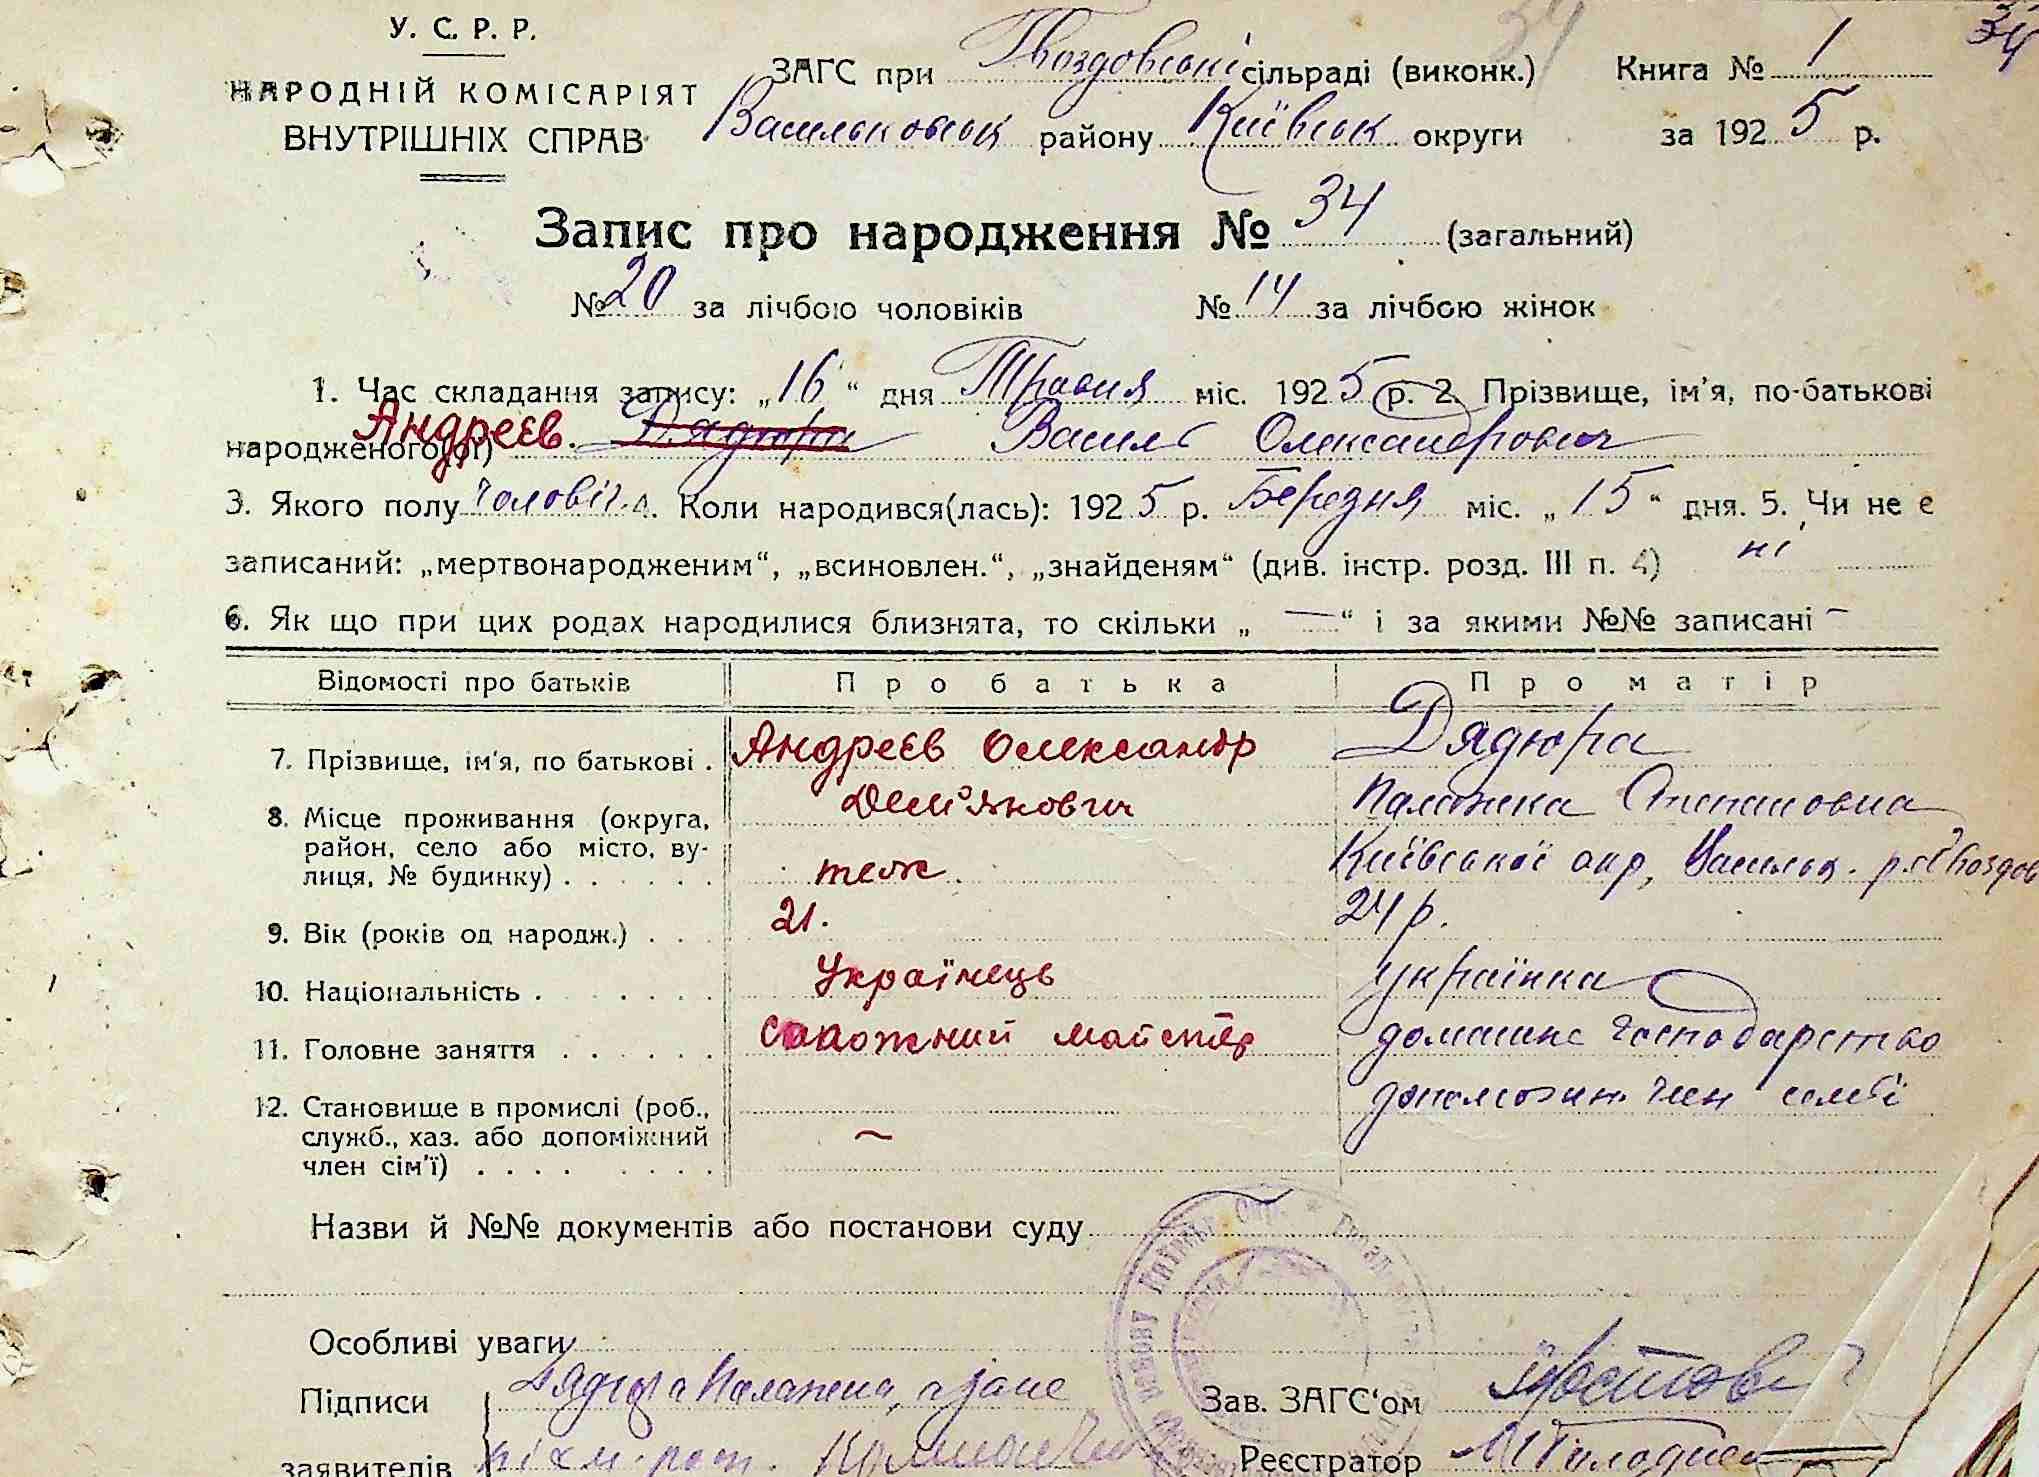 34
34
У. С. Р. Р.
НАРОДНІЙ КОМІСАРІЯТ
ВНУТРІШНІХ СПРАВ
ЗАГС при Гвоздовські сільраді (виконк.) Книга № 1
Васильковськ району Київськ округи за 1925 р.
Запис про народження № 34 (загальний)
№ 20 за лічбою чоловіків № 14 за лічбою жінок
1. Час складання запису: „16“ дня Травня міс. 1925 р. 2. Прізвище, ім'я, по-батькові
народженого(ої) Андреєв. Дядюра Василь Олександрович
3. Якого полу чоловіч. 4. Коли народився(лась): 1925 р. Березня міс. „15“ дня. 5. Чи не є
записаний: „мертвонародженим“, „всиновлен.“, „знайденям“ (див. інстр. розд. III п. 4) ні
6. Як що при цих родах народилися близнята, то скільки „—“ і за якими №№ записані —
Відомості про батьків Про батька Про матір
7. Прізвище, ім'я, по батькові . Андреєв Олександр Дядюра
Дем'янович Палажка Степановна
8. Місце проживання (округа,
район, село або місто, ву-
лиця, № будинку) . . . . . . теж. Київської окр, Васильк. р. с Гвоздов
9. Вік (років од народж.) . . . 21. 24 р.
10. Національність . . . . . . . Українець українка
11. Головне заняття . . . . . . Сапожний майстер домашнє господарство
12. Становище в промислі (роб.,
служб., хаз. або допоміжний
член сім'ї) . . . . . . . . — член семʼї
Назви й №№ документів або постанови суду
Особливі уваги
Підписи Дядюра Палажка,
заявителів
Зав. ЗАГС‘ом
Реєстратор